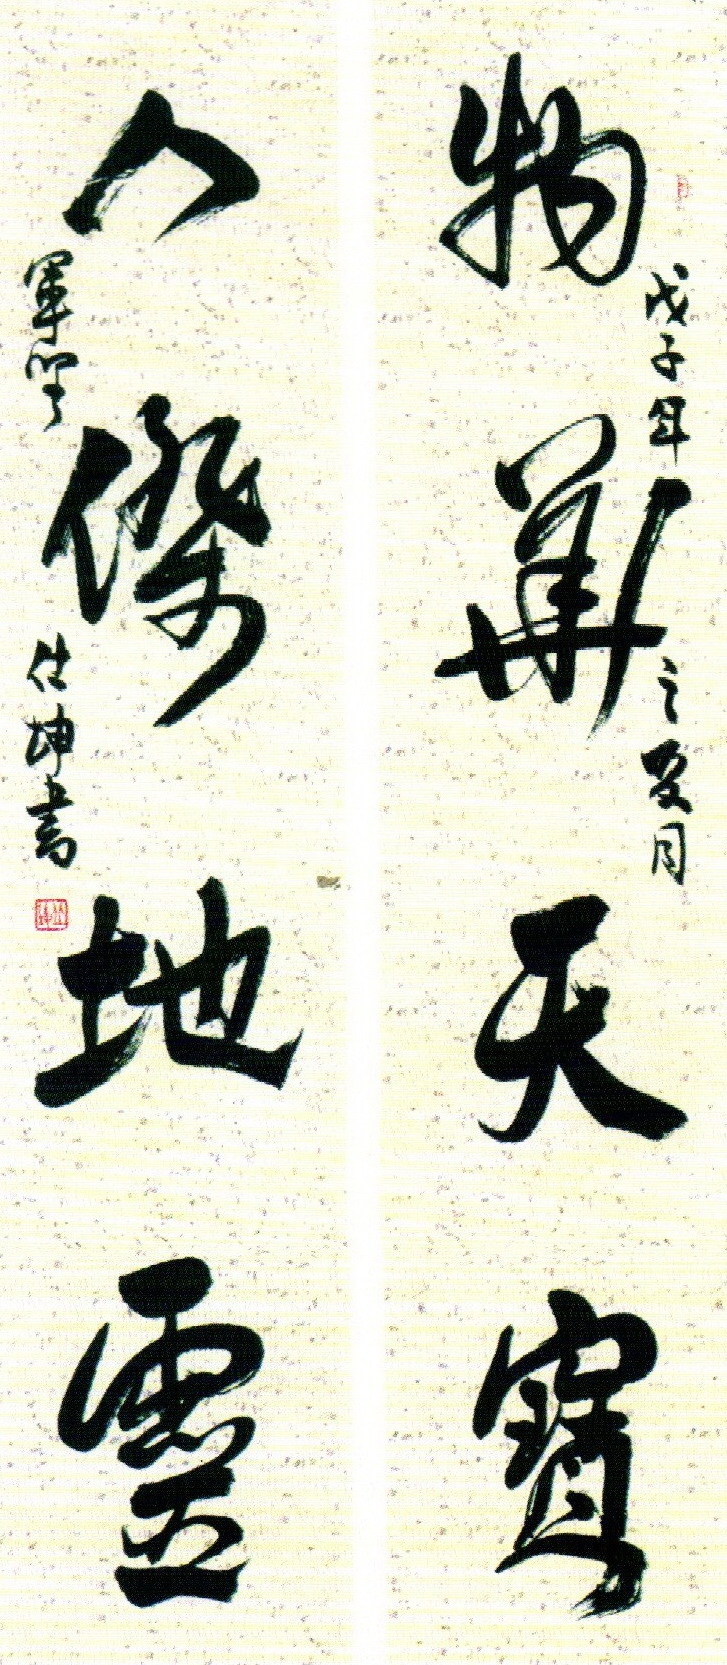 物華天寶
戊子年之夏月
人傑地靈
軍
仕坤書